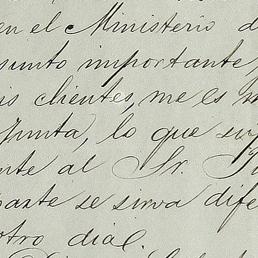 en el Ministerio d
sunto importante,
is clientes, me es im
Junta, lo que su
nte al Sr.
parte se sirva dife
otro dial.